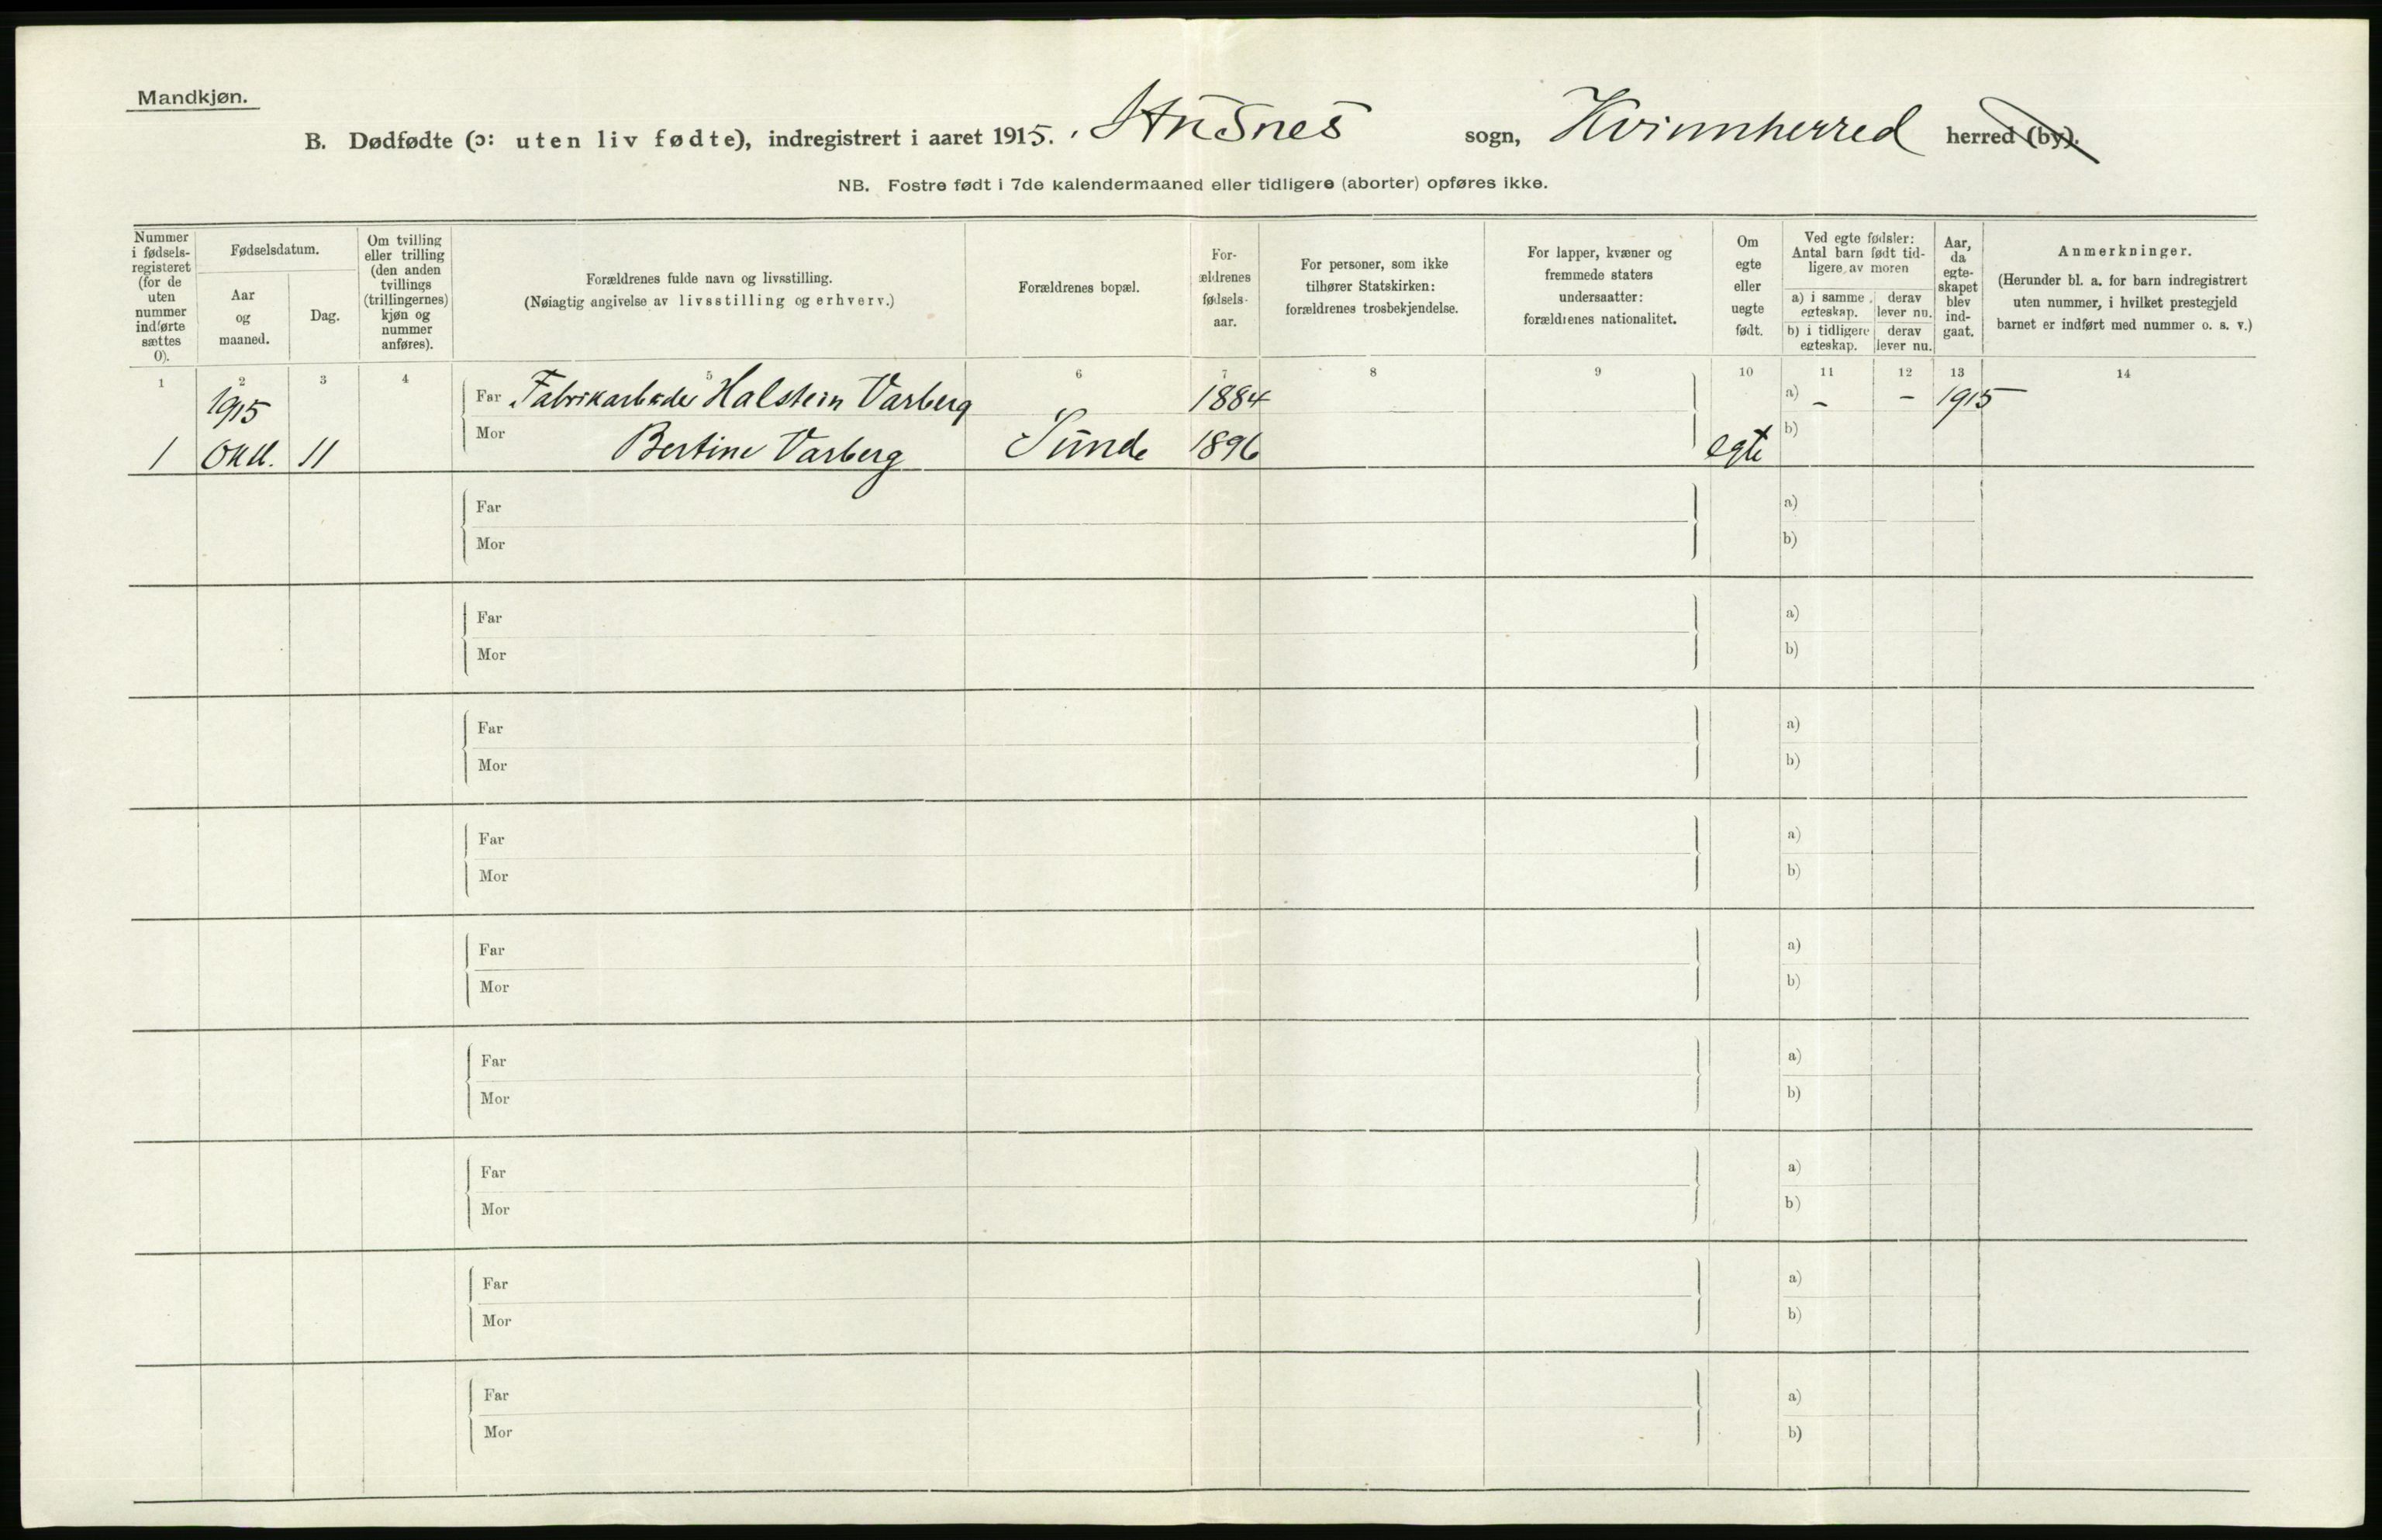 Mandkjøn.
B. Dødfødte (ɔ: uten liv fødte), indregistrert i aaret 1915. Husnes sogn, Kvinnherred herred (by).
NB. Fostre født i 7de kalendermaaned eller tidligere (aborter) opføres ikke.
Nummer i fødsels-registeret (for de uten nummer indførte sættes 0).
Fødselsdatum.
Aar og maaned.
Dag.
Om tvilling eller trilling (den anden tvillings (trillingernes) kjøn og nummer anføres).
Forældrenes fulde navn og livsstilling.
(Nøiagtig angivelse av livsstilling og erhverv.)
Forældrenes bopæl.
For-ældrenes fødsels-aar.
For personer, som ikke tilhører Statskirken: forældrenes trosbekjendelse.
For lapper, kvæner og fremmede staters undersaatter: forældrenes nationalitet.
Om egte eller uegte født.
Ved egte fødsler: Antal barn født tid-ligere av moren
a) i samme egteskap. derav lever nu.
b) i tidligere egteskap. derav lever nu.
Aar, da egte-skapet blev ind-gaat.
Anmerkninger.
(Herunder bl. a. for barn indregistrert uten nummer, i hvilket prestegjeld barnet er indført med nummer o. s. v.)
1 2 3 4 5 6 7 8 9 10 11 12 13 14
1915 Far Fabrikarbeider Halstein Varberg 1884 a) - - 1915
1 Okt. 11 Mor Bertine Varberg Sunde 1896 egte b)
Far a)
Mor b)
Far a)
Mor b)
Far a)
Mor b)
Far a)
Mor b)
Far a)
Mor b)
Far a)
Mor b)
Far a)
Mor b)
Far a)
Mor b)
Far a)
Mor b)